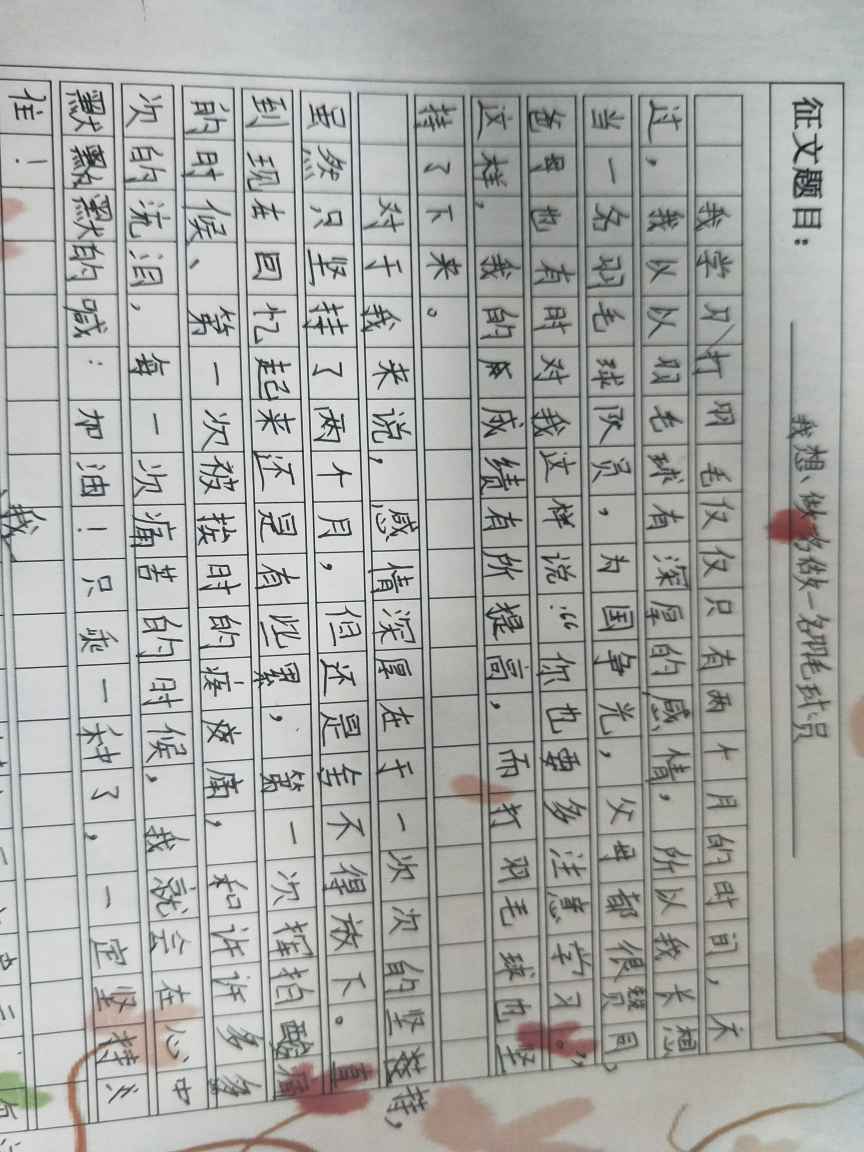 征文题目：我想、做一名羽毛球员
我学习打羽毛仅仅只有两个月的时间，不
过，我以以羽毛球有深厚的感情，所以我长想
当一名羽毛球队员，为国争光，父母都很赞同，
爸毋也有时对我这样说：“你也要多注意学习。”
这样，我的成绩有所提高，而打羽毛球也坚
持了下来。
对于我来说，感情深厚在于一次次的坚持，
虽然只坚持了两个月，但还是舍不得放下。直
到现在回忆起来还是有些累，第一次挥拍酸痛
的时候、第一次被挨时的疼痛，和许许多多
次的流泪，每一次痛苦的时候，我就会在心中
默默默的喊：加油！只乘一种了，一定坚持
住！
我